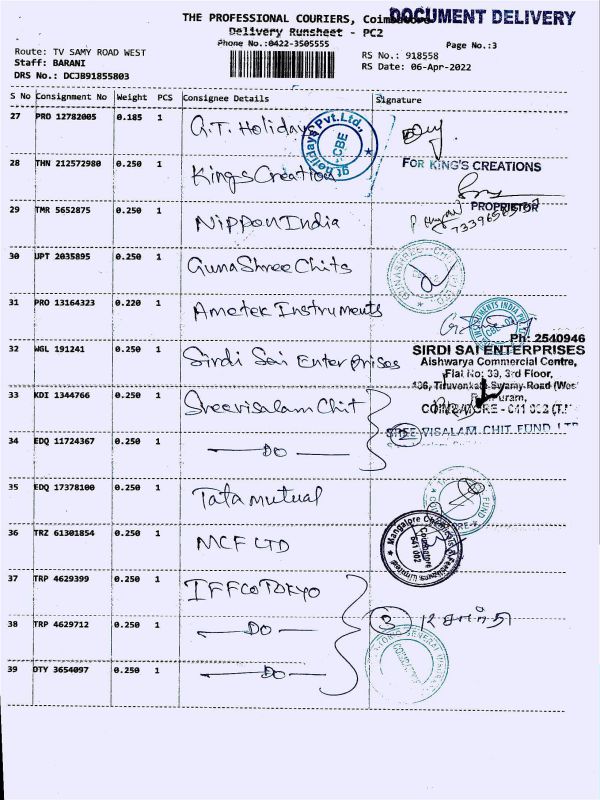 THE PROFESSIONAL COURIERS, Coimbatore
DOCUMENT DELIVERY
Delivery Runsheet - PC2
Phone No.:0422-3505555
Page No.:3
Route: TV SAMY ROAD WEST
Staff: BARANI
DRS No.: DCJB91855803
RS No.: 918558
RS Date: 06-Apr-2022
S No Consignment No Weight PCS Consignee Details Signature
27 PRO 12782005 0.185 1 G.T. Holidays
28 THN 212572980 0.250 1 Kings Creation
FOR KING'S CREATIONS
PROPRIETOR
29 TMR 5652875 0.250 1 Nippon India
30 UPT 2035895 0.250 1 GunaShree Chits
31 PRO 13164323 0.220 1 Ametek Instruments
Ph: 2540946
32 WGL 191241 0.250 1 Sirdi Sai Enterprises
SIRDI SAI ENTERPRISES
Aishwarya Commercial Centre,
Flat No: 39, 3rd Floor,
406, Tiruvenkata Swamy Road (West
Puram,
COIMBATORE - 641 002 (T.N
33 KDI 1344766 0.250 1 Sreevisalam Chit
SREE VISALAM CHIT FUND LTD
34 EDQ 11724367 0.250 1 — DO —
35 EDQ 17378100 0.250 1 Tata mutual
36 TRZ 61301854 0.250 1 MCF LTD
37 TRP 4629399 0.250 1 IFFCO TOKYO
38 TRP 4629712 0.250 1 — DO —
3
39 DTY 3654097 0.250 1 — DO —